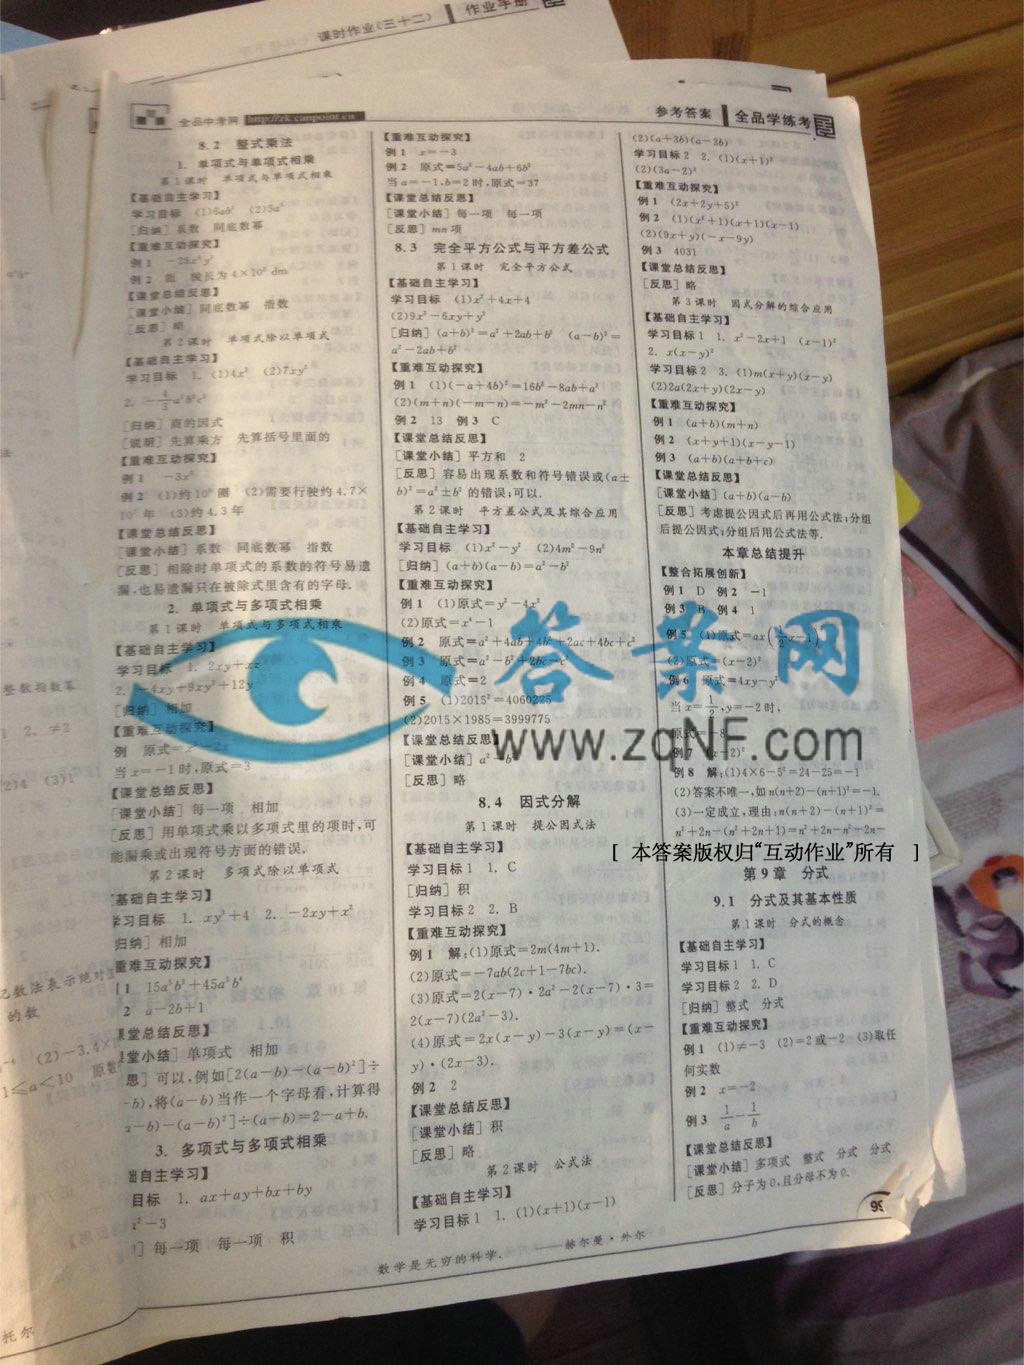 课时作业(三十二)
作业手册
全品中考网 http://zk.canpoint.cn
参考答案
全品学练考
8.2 整式乘法
1. 单项式与单项式相乘
第1课时 单项式与单项式相乘
【基础自主学习】
学习目标 (1)6ab³ (2)5a³
[归纳] 系数 同底数幂
【重难互动探究】
例1
例2 能 棱长为4×10² dm
【课堂总结反思】
[课堂小结] 同底数幂 指数
[反思] 略
第2课时 单项式除以单项式
【基础自主学习】
学习目标 1. (1)4x² (2)7xy²
2.
[归纳] 商的因式
[说明] 先算乘方 先算括号里面的
【重难互动探究】
例1 -3x³
例2 (1)约10⁹圈 (2)需要行驶约4.7×
年 (3)约4.3年
【课堂总结反思】
[课堂小结] 系数 同底数幂 指数
[反思] 相除时单项式的系数的符号易遗
漏,也易遗漏只在被除式里含有的字母.
2. 单项式与多项式相乘
第1课时 单项式与多项式相乘
【基础自主学习】
学习目标 1. 2xy+xz
2. -4xy+9xy²+12y
[归纳] 相加
【重难互动探究】
例 原式=x²-2x
当x=-1时,原式=3
【课堂总结反思】
[课堂小结] 每一项 相加
[反思] 用单项式乘以多项式里的项时,可
能漏乘或出现符号方面的错误.
第2课时 多项式除以单项式
基础自主学习】
学习目标 1. xy³+4 2. -2xy+x²
归纳] 相加
重难互动探究】
1 15a³b³+45a⁴b⁴
2 a-2b+1
课堂总结反思】
课堂小结] 单项式 相加
思] 可以,例如[2(a-b)-(a-b)²]÷
-b),将(a-b)当作一个字母看,计算得
a-b)-(a-b)²]÷(a-b)=2-a+b.
3. 多项式与多项式相乘
础自主学习】
目标 1. ax+ay+bx+by
x²-3
] 每一项 每一项 积
【重难互动探究】
例1 x=-3
例2 原式=5a²-4ab+6b²
当a=-1,b=2时,原式=37
【课堂总结反思】
[课堂小结] 每一项 每一项
[反思] mn项
8.3 完全平方公式与平方差公式
第1课时 完全平方公式
【基础自主学习】
学习目标 (1)x²+4x+4
(2)9x²-6xy+y²
[归纳] (a+b)²=a²+2ab+b² (a-b)²=
a²-2ab+b²
【重难互动探究】
例1 (1)(-a+4b)²=16b²-8ab+a²
(2)(m+n)(-m-n)=-m²-2mn-n²
例2 13 例3 C
【课堂总结反思】
[课堂小结] 平方和 2
[反思] 容易出现系数和符号错误或(a±
b)²=a²±b²的错误;可以.
第2课时 平方差公式及其综合应用
【基础自主学习】
学习目标 (1)x²-y² (2)4m²-9n²
[归纳] (a+b)(a-b)=a²-b²
【重难互动探究】
例1 (1)原式=y²-4x²
(2)原式=x⁴-1
例2 原式=a²+4ab+4b²+2ac+4bc+c²
例3 原式=a²-b²+2bc-c²
例4 原式=2
例5 (1)2015²=4060225
(2)2015×1985=3999775
【课堂总结反思】
[课堂小结] a²-b²
[反思] 略
8.4 因式分解
第1课时 提公因式法
【基础自主学习】
学习目标1 1. C
[归纳] 积
学习目标2 2. B
【重难互动探究】
例1 解:(1)原式=2m(4m+1).
(2)原式=-7ab(2c+1-7bc).
(3)原式=2(x-7)·2a²-2(x-7)·3=
2(x-7)(2a²-3).
(4)原式=2x(x-y)-3(x-y)=(x-
y)·(2x-3).
例2 2
【课堂总结反思】
[课堂小结] 积
[反思] 略
第2课时 公式法
【基础自主学习】
学习目标1 1. (1)(x+1)(x-1)
(2)(a+3b)(a-3b)
学习目标2 2. (1)(x+1)²
(2)(3a-2)²
【重难互动探究】
例1 (2x+2y+5)²
例2 (1)(x²+1)(x+1)(x-1)
(2)(9x+y)(-x-9y)
例3 4031
【课堂总结反思】
[反思] 略
第3课时 因式分解的综合应用
【基础自主学习】
学习目标1 1. x²-2x+1 (x-1)²
2. x(x-y)²
学习目标2 3. (1)m(x+y)(x-y)
(2)2a(2x+y)(2x-y)
【重难互动探究】
例1 (a+b)(m+n)
例2 (x+y+1)(x-y-1)
例3 (a+b)(a+b+c)
【课堂总结反思】
[课堂小结] (a+b)(a-b)
[反思] 考虑提公因式后再用公式法;分组
后提公因式;分组后用公式法等.
本章总结提升
【整合拓展创新】
例1 D 例2 -1
例3 B 例4 1
例5 (1)原式=ax
(2)原式=(x-2)²
例6 原式=4xy-y²
当x=1/2,y=-2时,
原式=-8
例7 (x-2)²
例8 解:(1)4×6-5²=24-25=-1
(2)答案不唯一,如n(n+2)-(n+1)²=-1.
(3)一定成立,理由:n(n+2)-(n+1)²=
n²+2n-(n²+2n+1)=n²+2n-n²-2n-
[ 本答案版权归“互动作业”所有 ]
第9章 分式
9.1 分式及其基本性质
第1课时 分式的概念
【基础自主学习】
学习目标1 1. C
学习目标2 2. D
[归纳] 整式 分式
【重难互动探究】
例1 (1)≠-3 (2)=2或-2 (3)取任
何实数
例2 x=-2
例3 1/a-1/b
【课堂总结反思】
[课堂小结] 多项式 整式 分式 分式
[反思] 分子为0,且分母不为0.
数学是无穷的科学. ——赫尔曼·外尔
答案网
www.zqNF.com
整数指数幂
1 2. ≠2
(2)4 (3)1
记数法表示绝对值
的数
(2)-3.4×
1≤a<10 原数
托尔